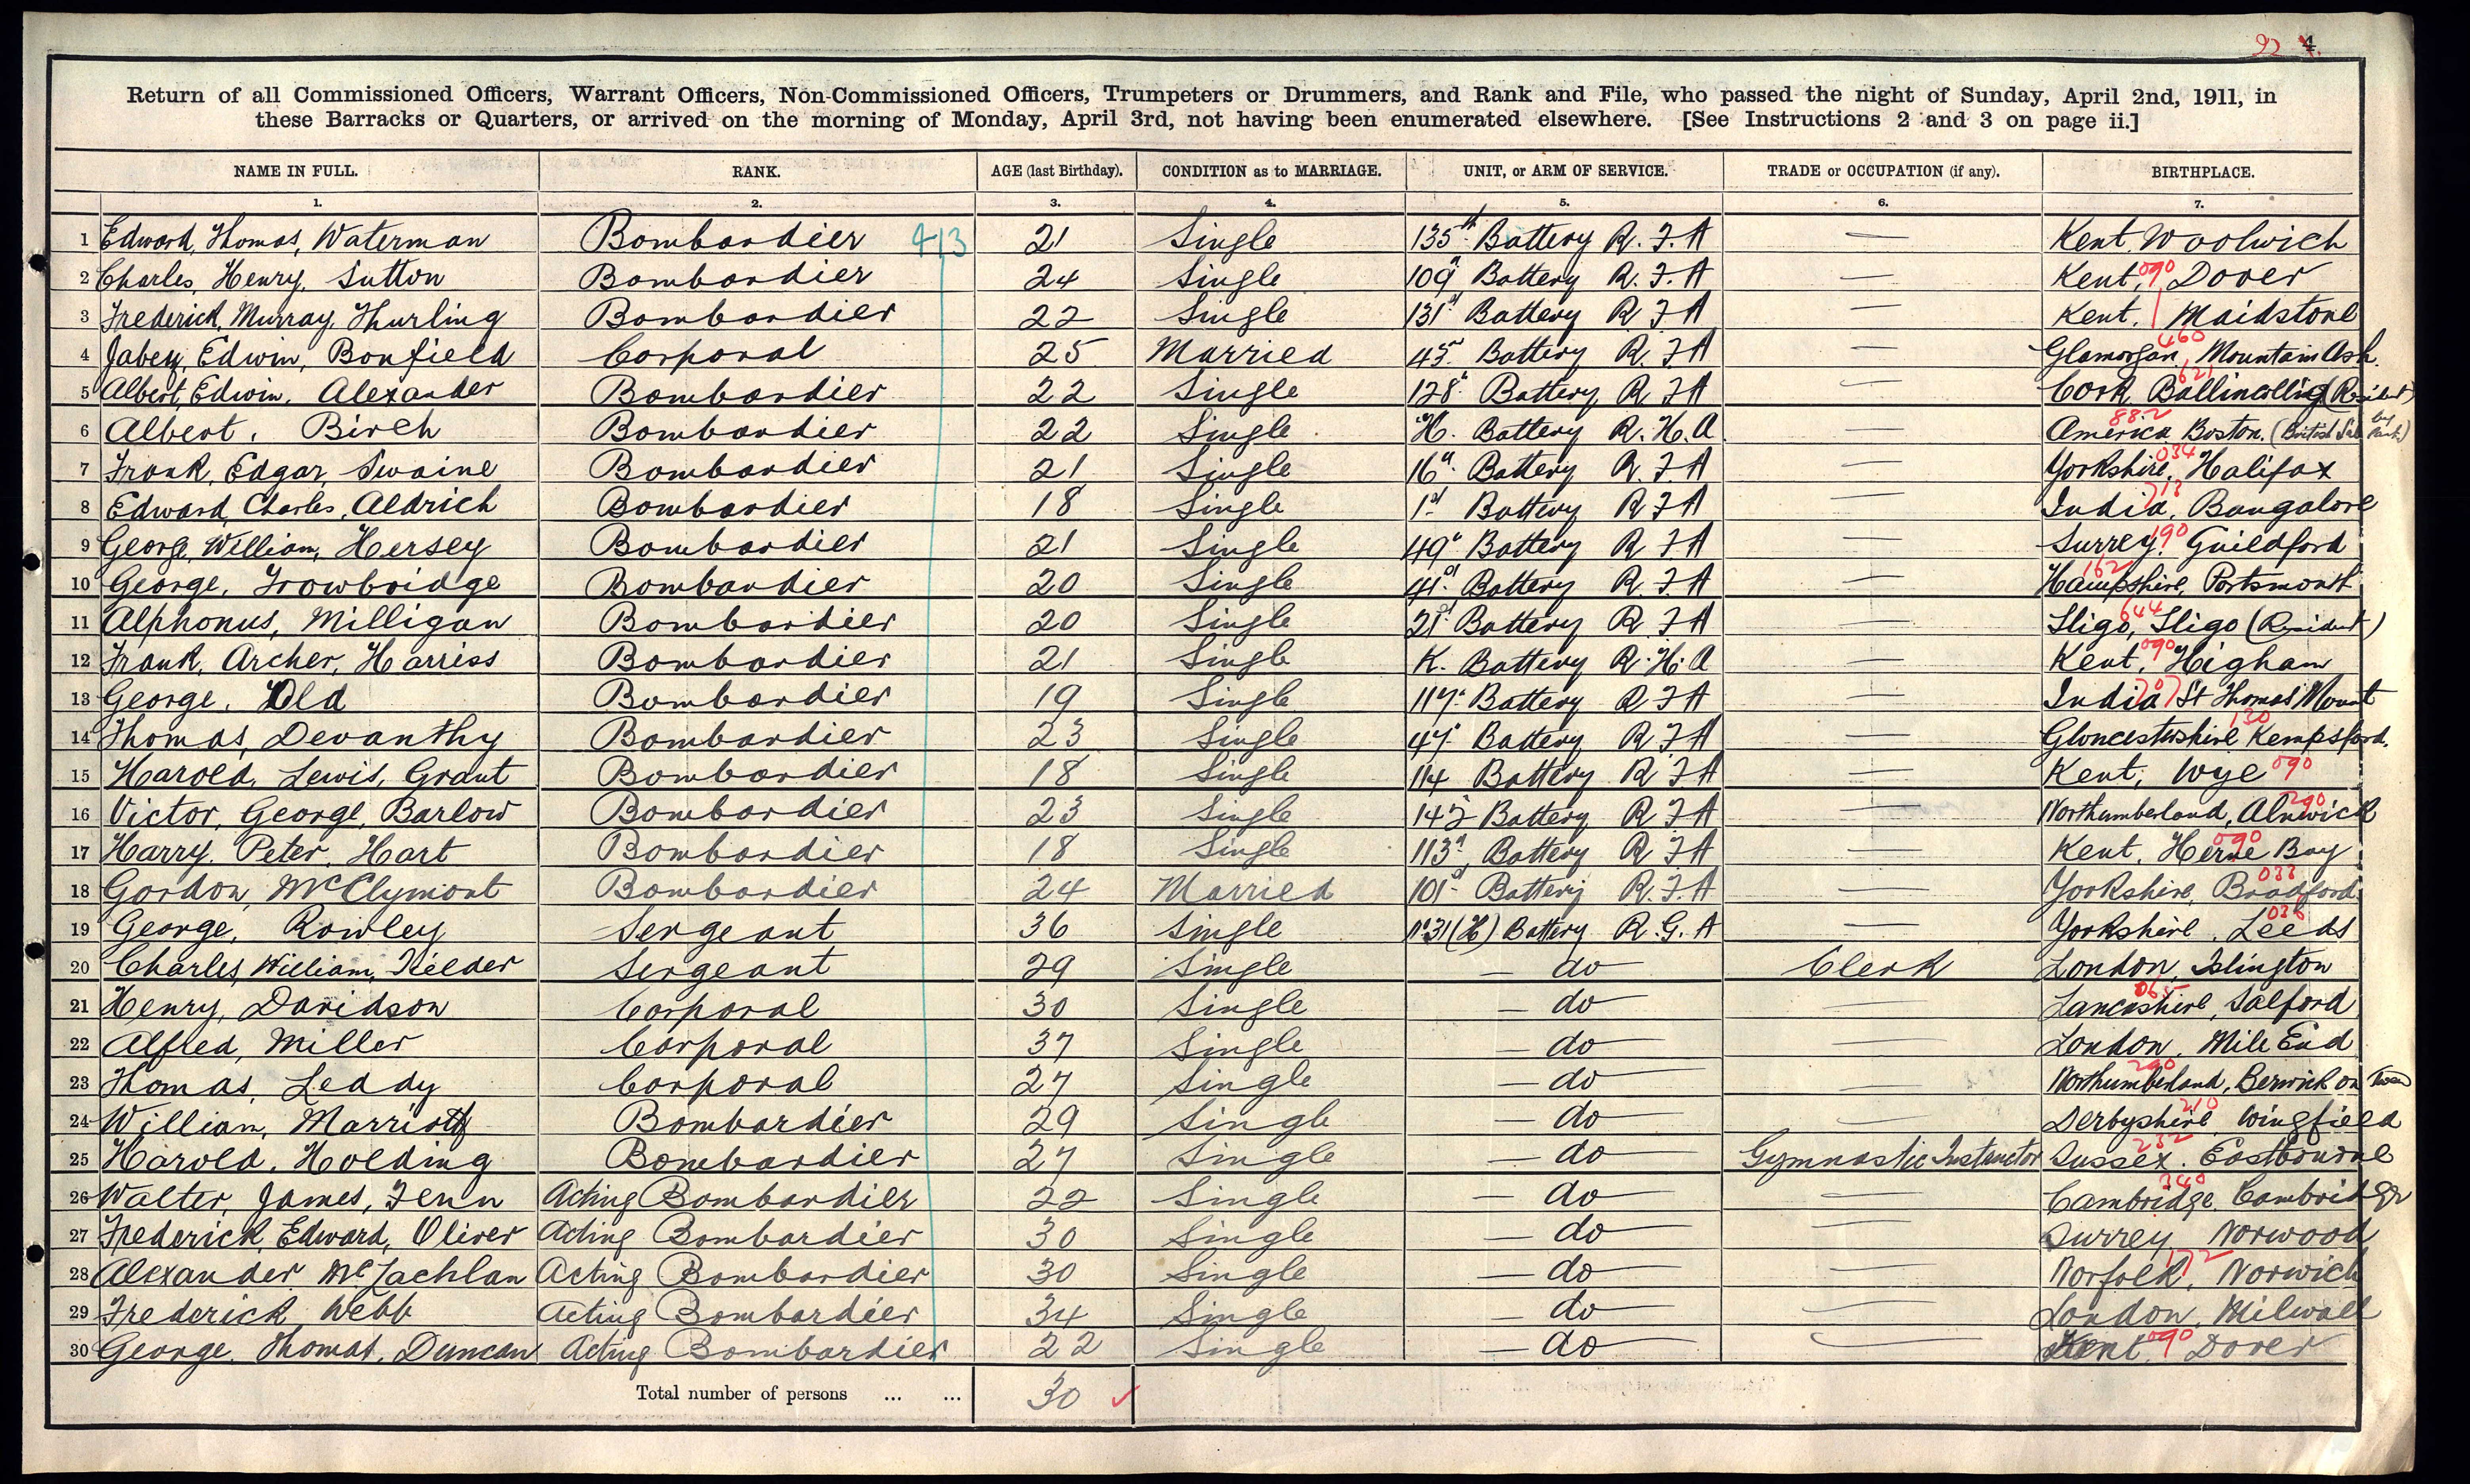 92 4
Return of all Commissioned Officers, Warrant Officers, Non-Commissioned Officers, Trumpeters or Drummers, and Rank and File, who passed the night of Sunday, April 2nd, 1911, in
these Barracks or Quarters, or arrived on the morning of Monday, April 3rd, not having been enumerated elsewhere. [See Instructions 2 and 3 on page ii.]
NAME IN FULL. RANK. AGE (last Birthday). CONDITION as to MARRIAGE. UNIT, or ARM OF SERVICE. TRADE or OCCUPATION (if any). BIRTHPLACE.
1. 2. 3. 4. 5. 6. 7.
1 Edward, Thomas, Waterman Bombardier 413 21 Single 135th Battery R.F.A — Kent, Woolwich
2 Charles, Henry, Sutton Bombardier 24 Single 109th Battery R.F.A — Kent, 090 Dover
3 Frederick, Murray, Thurling Bombardier 22 Single 131st Battery R F A — Kent, Maidstone
4 Jabez, Edwin, Bonfield Corporal 25 Married 45th Battery R.F.A — Glamorgan, 460 Mountain Ash.
5 Albert, Edwin, Alexander Bombardier 22 Single 128th Battery R F A — Cork 621 Ballincollig (Resident)
6 Albert, Birch Bombardier 22 Single H. Battery R.H.A. — America 882 Boston. (British Sub by Par.)
7 Frank, Edgar, Swaine Bombardier 21 Single 16th Battery R.F.A — Yorkshire, 034 Halifax
8 Edward, Charles, Aldrich Bombardier 18 Single 1st Battery R F A — India, 713 Bangalore
9 George, William, Hersey Bombardier 21 Single 49th Battery R F A — Surrey, 190 Guildford
10 George, Trowbridge Bombardier 20 Single 41st Battery R.F.A — Hampshire, 162 Portsmouth
11 Alphonus, Milligan Bombardier 20 Single 21st Battery R F A — Sligo, 644 Sligo (Resident)
12 Frank, Archer, Harriss Bombardier 21 Single K. Battery R.H.A — Kent, 090 Higham
13 George, Old Bombardier 19 Single 117th Battery R F A — India 707 St Thomas Mount
14 Thomas, Devanthy Bombardier 23 Single 47th Battery R F A — Gloucestershire 130 Kempsford.
15 Harold, Lewis, Grant Bombardier 18 Single 114 Battery R F A — Kent, Wye 090
16 Victor, George, Barlow Bombardier 23 Single 142 Battery R F A — Northumberland, 290 Alnwick
17 Harry, Peter, Hart Bombardier 18 Single 113th Battery R F A — Kent, Herne 090 Bay
18 Gordon, McClymont Bombardier 24 Married 101st Battery R.F.A — Yorkshire, 033 Bradford
19 George, Rowley Sergeant 36 Single No 31 (H) Battery R.G.A — Yorkshire, 036 Leeds
20 Charles, William, Fielder Sergeant 29 Single — do — Clerk London, Islington
21 Henry, Davidson Corporal 30 Single — do — — Lancashire, 065 Salford
22 Alfred, Miller Corporal 37 Single — do — — London, Mile End
23 Thomas, Leddy Corporal 27 Single — do — — Northumberland, 290 Berwick on Tweed
24 William, Marriott Bombardier 29 Single — do — — Derbyshire, 210 Wingfield
25 Harold, Holding Bombardier 27 Single — do — Gymnastic Instructor Sussex. 232 Eastbourne
26 Walter, James, Fenn Acting Bombardier 22 Single — do — — Cambridge, 340 Cambridge
27 Frederick, Edward, Oliver Acting Bombardier 30 Single — do — — Surrey, Norwood
28 Alexander McLachlan Acting Bombardier 30 Single — do — — Norfolk, 172 Norwich
29 Frederick Webb Acting Bombardier 34 Single — do — — London, Milwall
30 George, Thomas, Duncan Acting Bombardier 22 Single — do — — Kent, 090 Dover
Total number of persons ... ... 30 ✓